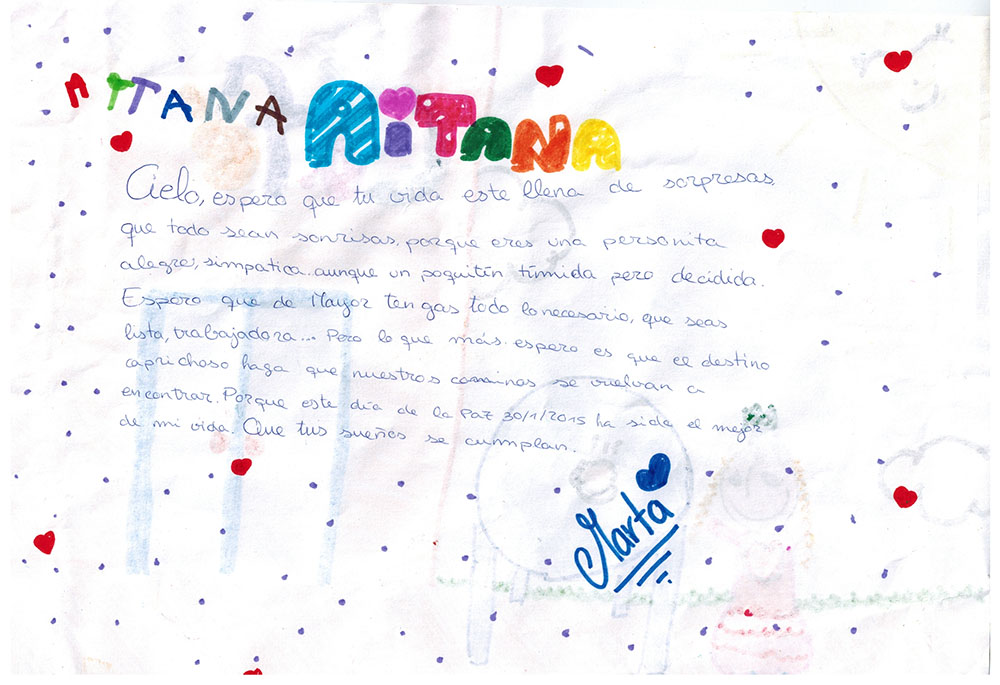 AITANA AiTANA
Cielo, espero que tu vida este llena de sorpresas,
que todo sean sonrisas, porque eres una personita
alegre, simpatica.. aunque un poquitín tímida pero decidida.
Espero que de Mayor tengas todo lo necesario, que seas
lista, trabajadora... Pero lo que más espero es que el destino
caprichoso haga que nuestros caminos se vuelvan a
encontrar. Porque este día de la Paz 30/1/2015 ha sido el mejor
de mi vida. Que tus sueños se cumplan.
Marta